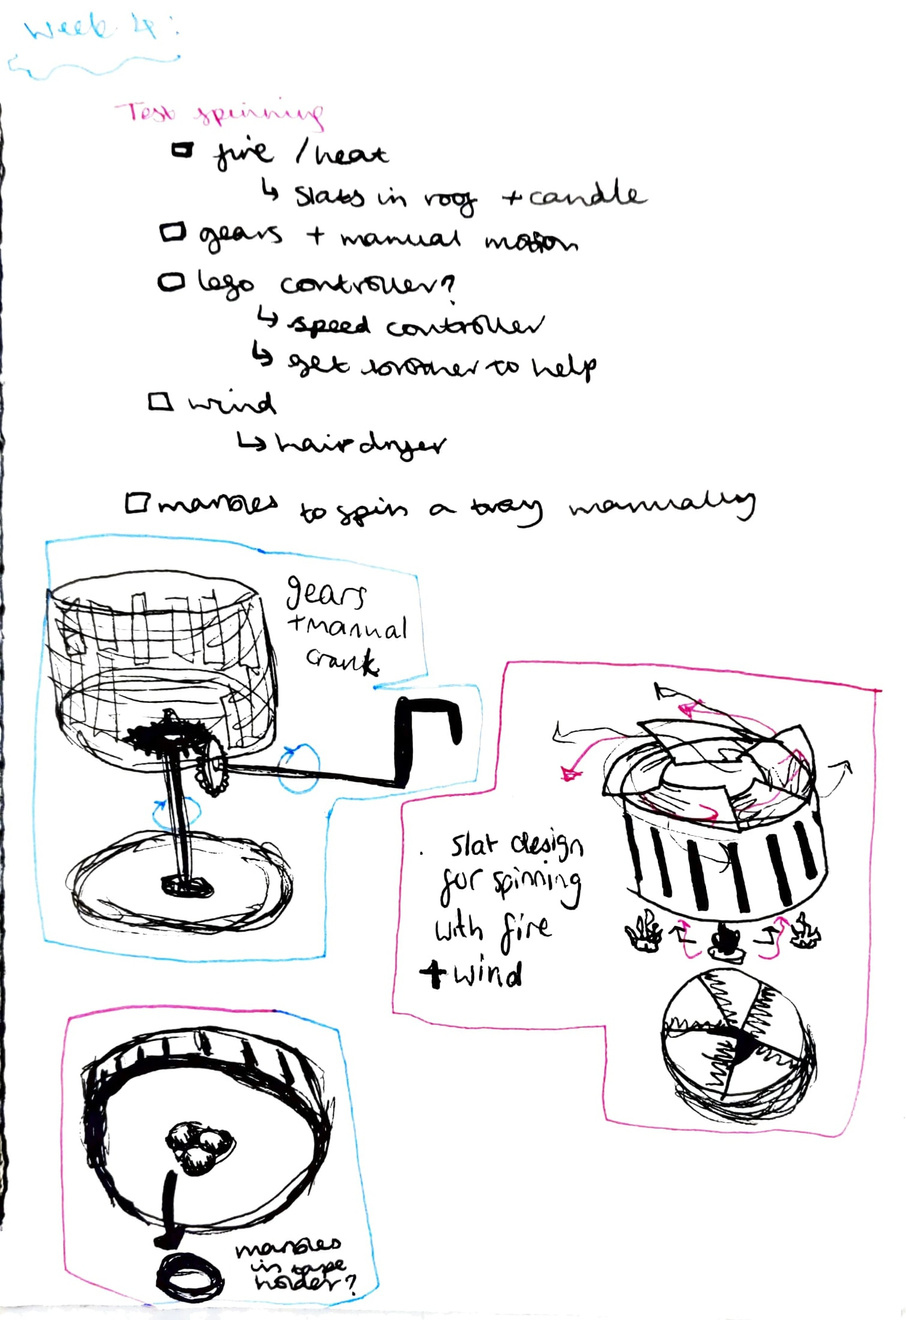 Week 4:
Test spinning
fire / heat
↳ slats in roof + candle
gears + manual motion
lego controller?
↳ speed controller
↳ get brother to help
wind
↳ hairdryer
marbles to spin a tray manually
gears
+ manual
crank
slat design
for spinning
with fire
+ wind
marbles
in tape
holder?